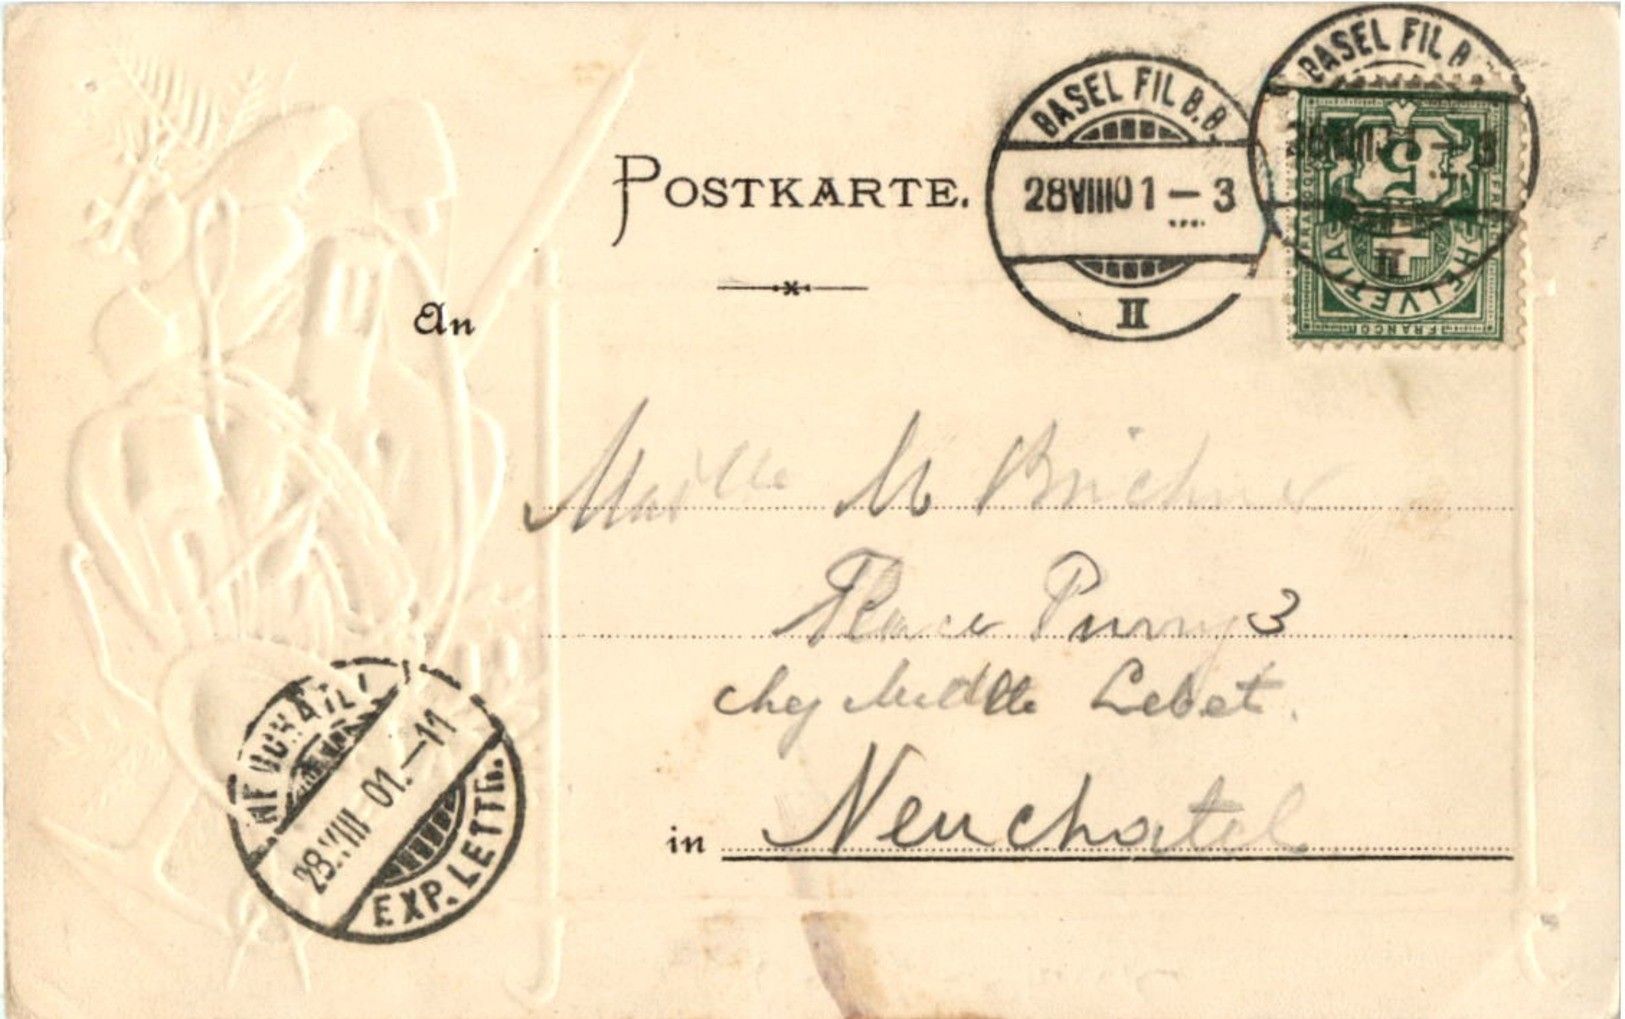 POSTKARTE.
BASEL FIL B.B.
28VIII01 — 3
II
BASEL FIL B.
II
5
HELVETIA
FRANCO
An
M
Place Purry 3
chez Mdlle Lebet.
in Neuchatel
NEUCHATEL
28.VIII 01.—11
EXP. LETTR.